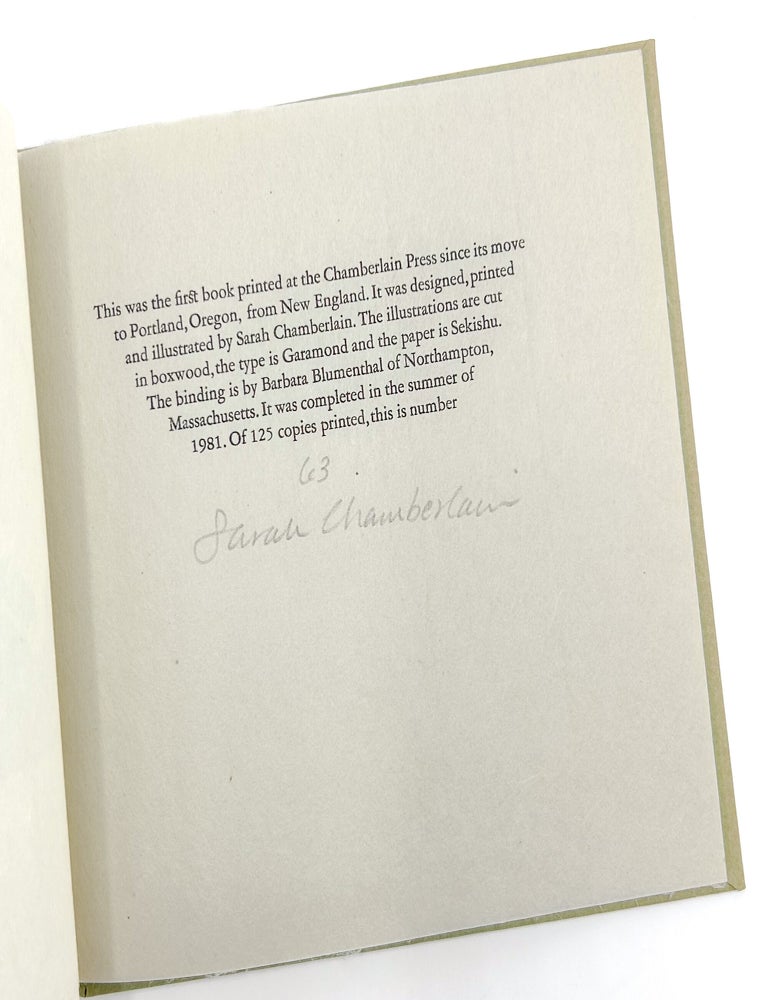 This was the first book printed at the Chamberlain Press since its move
to Portland, Oregon, from New England. It was designed, printed
and illustrated by Sarah Chamberlain. The illustrations are cut
in boxwood, the type is Garamond and the paper is Sekishu.
The binding is by Barbara Blumenthal of Northampton,
Massachusetts. It was completed in the summer of
1981. Of 125 copies printed, this is number
63 .
Sarah Chamberlain